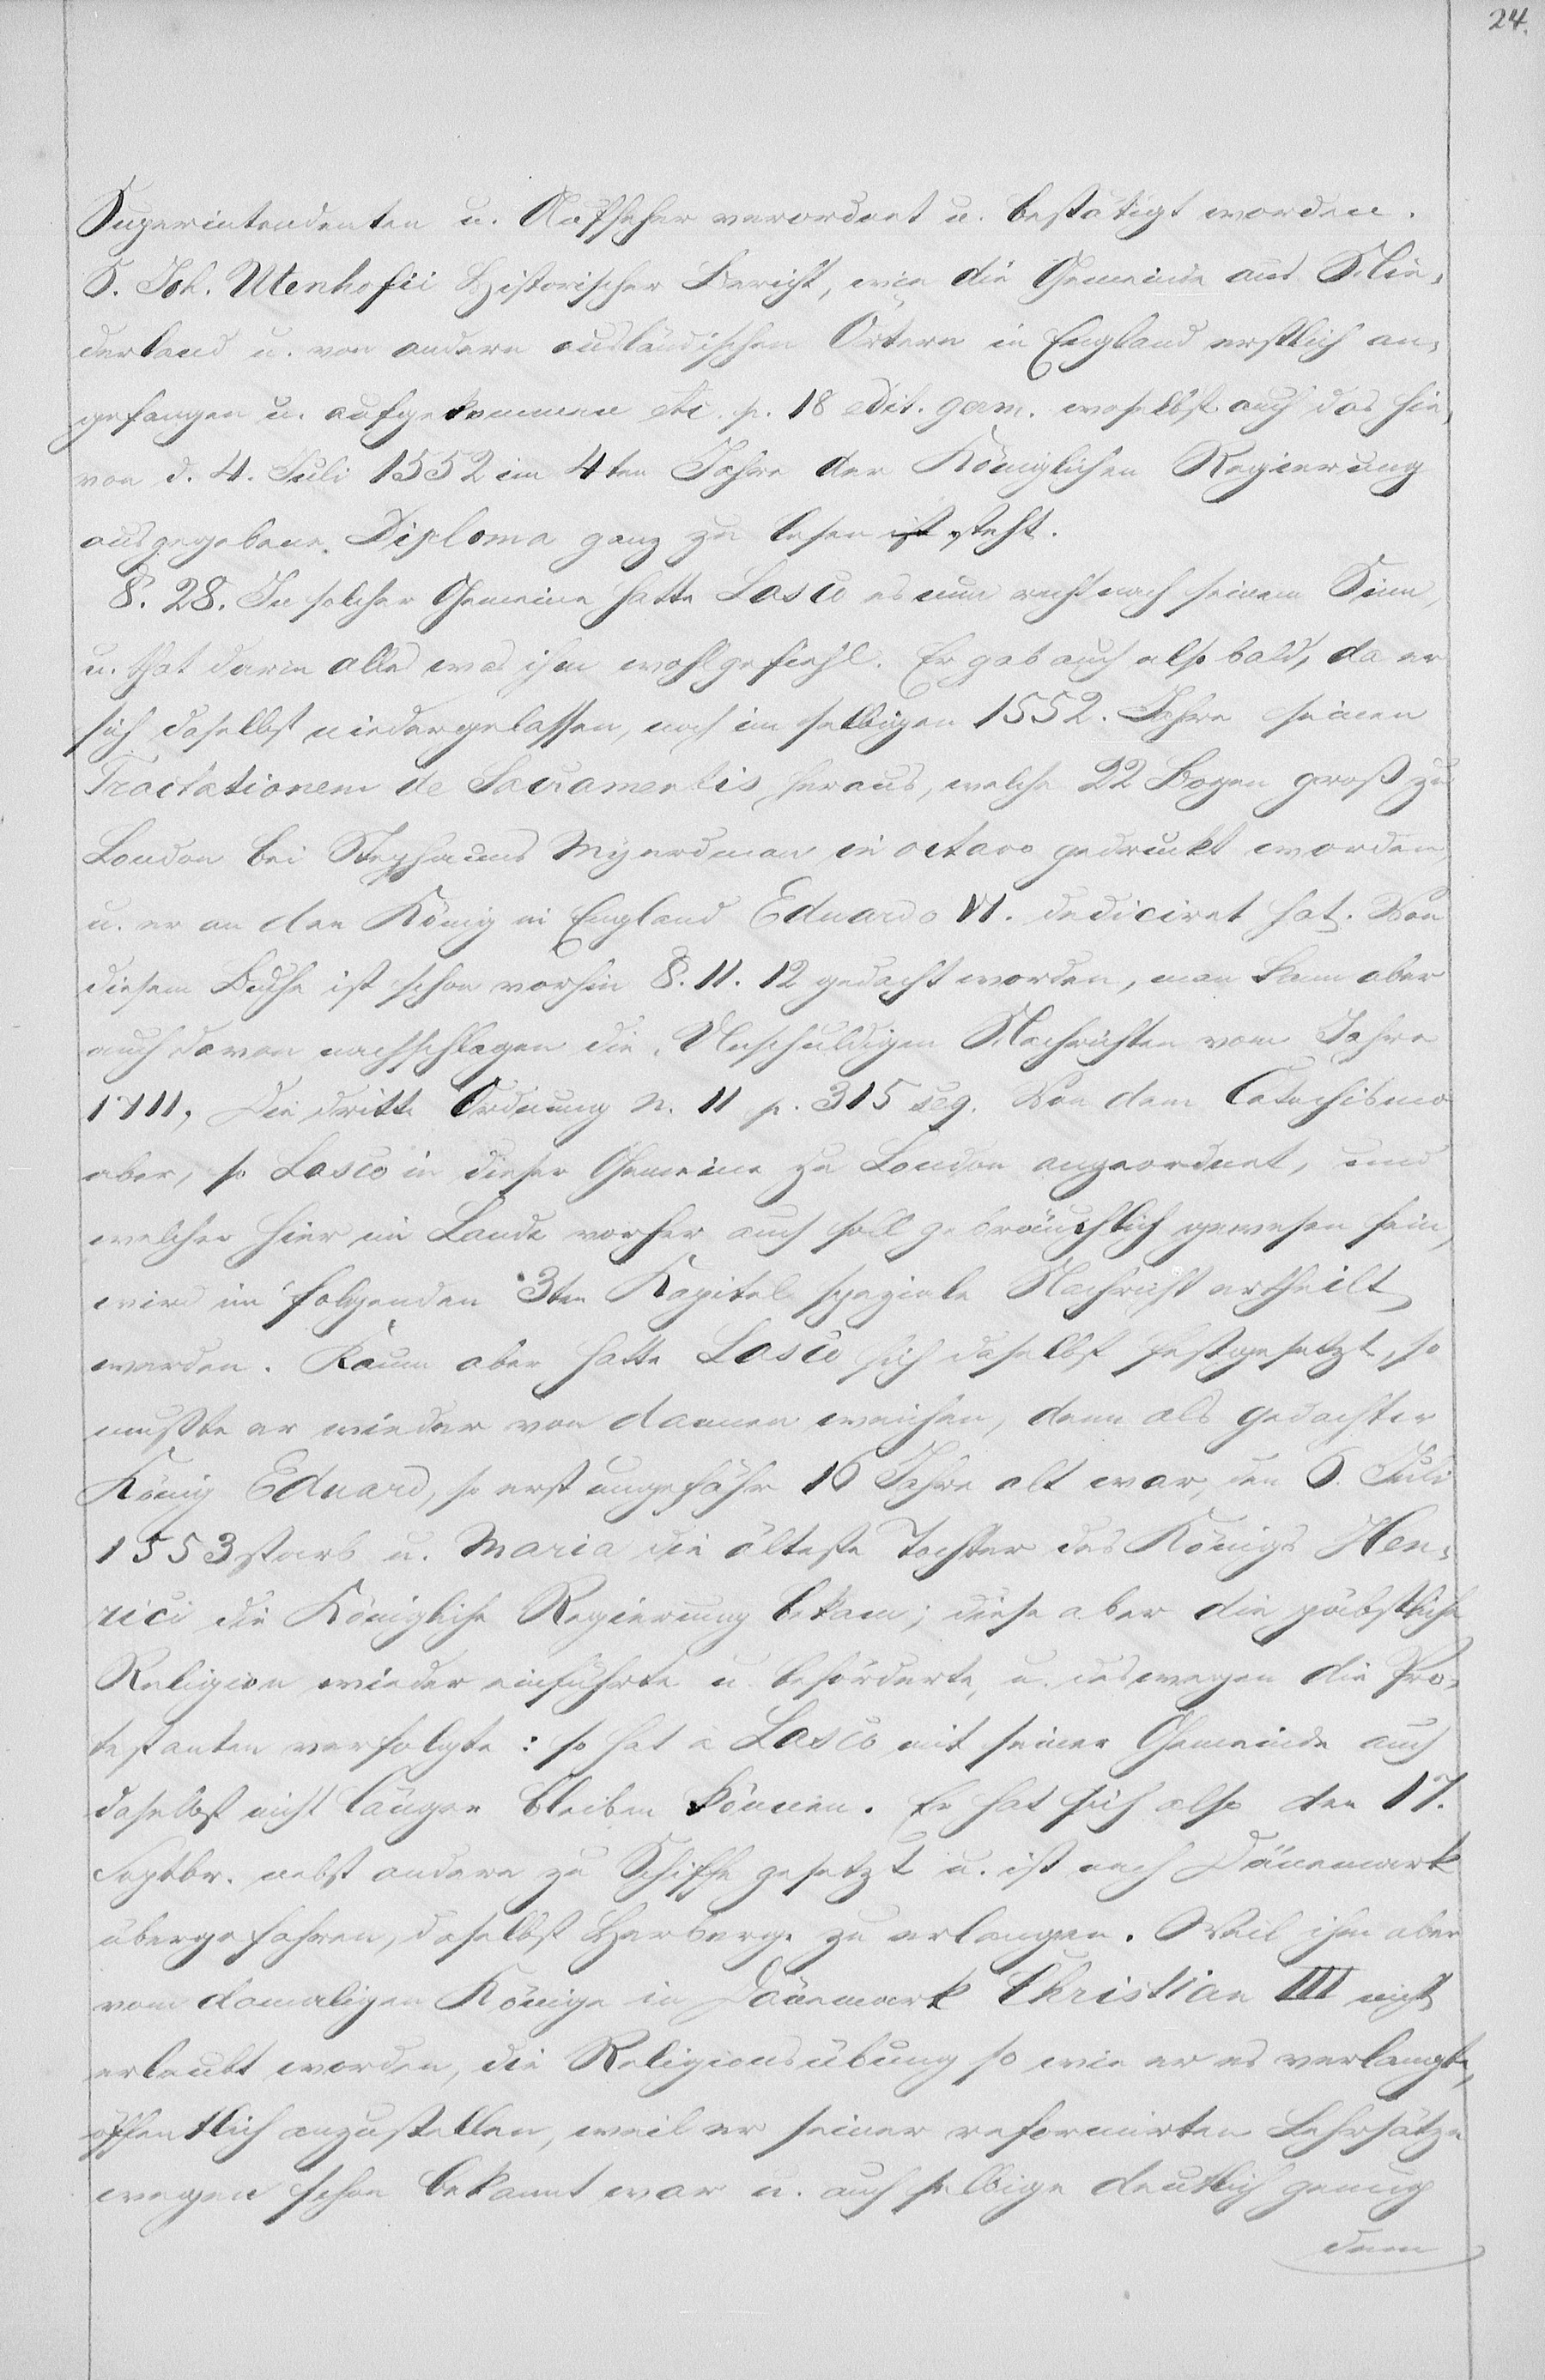 24.
Superintendenten u. Aufseher verordnet u. bestätigt worden.
S. Joh. Utenhofii Historischer Bericht, wie die Gemeinde aus Nie-
derland u. von andern ausländischen Örtern in England erstlich an-
gefangen u. aufgekommen etc. p. 18 edit. germ. woselbst auch das hie-
von d. 4. Juli 1552 im 4ten Jahre der Königlichen Regierung
ausgegebene Diploma ganz zu lesen ist steht.
§. 28. In solcher Gemeine hatte Lasco es nun recht nach seinem Sinn,
u. that darin alles was ihm wohlgefiehl. Er gab auch also bald, da er
sich daselbst niedergelassen, noch im selbigen 1552. Jahre seinen
Tractationem de Sacramentis heraus, welche 22 Bogen groß zu
London bei Stephanus Myerdman in octavo gedruckt worden,
u. er an den König in England Eduardo VI. dediciret hat. Von
diesem Buche ist schon vorhin §. 11. 12 gedacht worden, man kann aber
auch davon nachschlagen die Unschuldigen Nachrichten vom Jahre
1711, Die dritte Ordnung N. 11 p. 315 seq. Von dem Catechismo
aber, so Lasco in dieser Gemeine zu London angeordnet, und
welcher hier im Lande vorher auch soll gebräuchlich gewesen sein,
wird im folgenden 3ten Kapitel speziale Nachricht ertheilt
werden. Kaum aber hatte Lasco sich daselbst festgesetzt, so
mußte er wieder von dannen weichen, denn als gedachter
König Eduard, so erst ungefähr 16 Jahre alt war, den 6. Juli
1553 starb u. Maria die älteste Tochter des Königs Hen-
rici die Königliche Regierung bekam; diese aber die päbstliche
Religion wieder einführte u. beförderte, u. deswegen die Pro-
testanten verfolgte: so hat a Lasco mit seiner Gemeinde auch
daselbst nicht länger bleiben können. Er hat sich also den 17.
Septbr. nebst andern zu Schiffe gesetzt u. ist nach Dänemark
übergefahren, daselbst Herberge zu erlangen. Weil ihm aber
vom damaligen Könige in Dänemark Christian III nicht
erlaubt worden, die Religionsübung so wie er es verlangte,
öffentlich anzustellen, weil er seiner reformirten Lehrsätze
wegen schon bekannt war u. auch selbige deutlich genug
dem